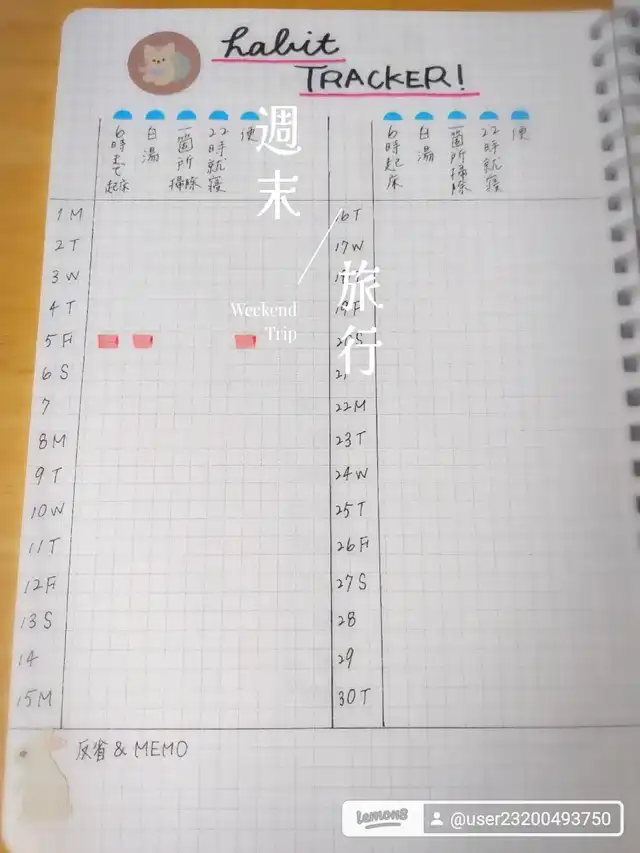 habit
TRACKER!
6時まで起床
白湯
一箇所掃除
22時就寝
便
6時起床
白湯
一箇所掃除
22時就寝
便
週末
旅行
Weekend
Trip
1 M
2 T
3 W
4 T
5 F
6 S
7
8 M
9 T
10 W
11 T
12 F
13 S
14
15 M
16 T
17 W
19 F
20 S
21
22 M
23 T
24 W
25 T
26 F
27 S
28
29
30 T
反省 & MEMO
lemon8
@user23200493750